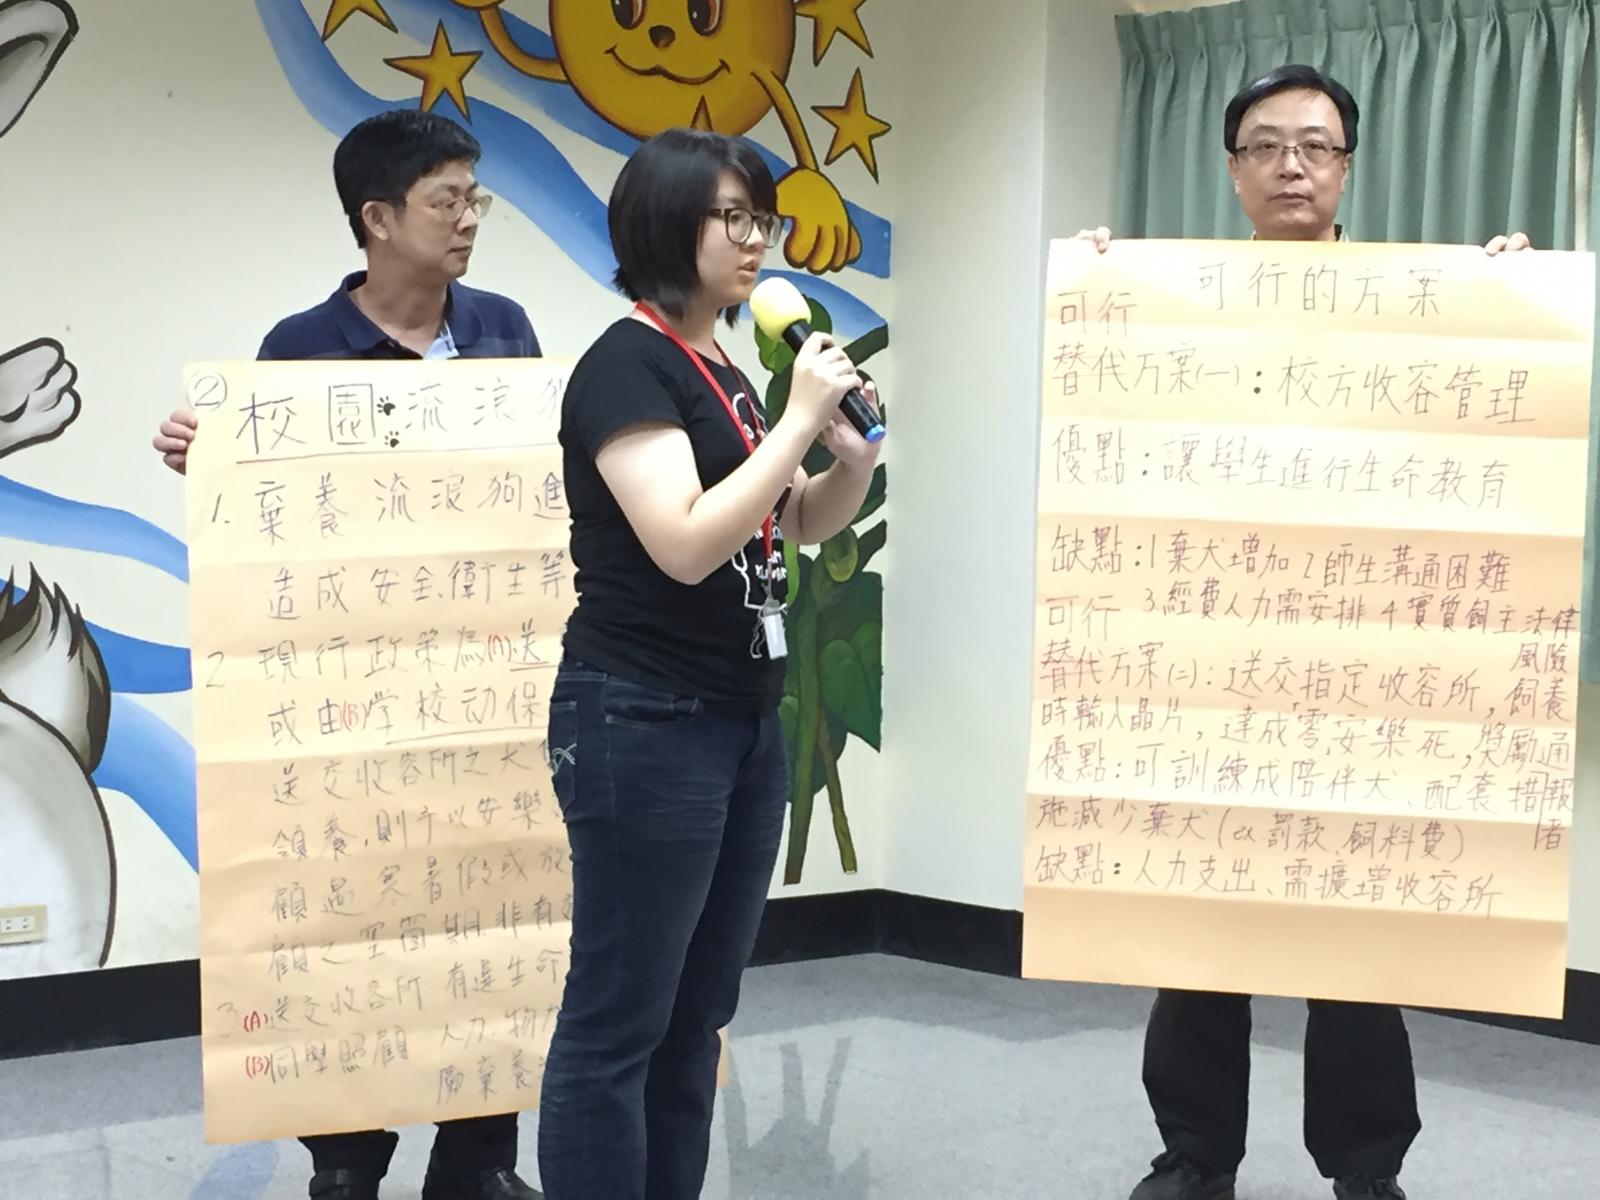 ② 校園流浪狗
1. 棄養流浪狗進
造成安全、衛生等
2 現行政策為(A)送
或由(B)學校动保
送交收容所之犬
領養,則予以安樂
顧過寒暑假或放
顧之空窗期.非有
3 (A)送交收容所 有違生命
(B)同學照顧 人力、物力
勵棄養
可行的方案
可行
替代方案(一):校方收容管理
優點:讓學生進行生命教育
缺點:1棄犬增加 2師生溝通困難
3.經費人力需安排 4實質飼主法律
風險
可行
替代方案(二):送交指定收容所,飼養
時輸入晶片,達成「零安樂死」獎勵通
報者
優點:可訓練成陪伴犬、配套措
施減少棄犬(ex.罰款、飼料費)
缺點:人力支出、需擴增收容所